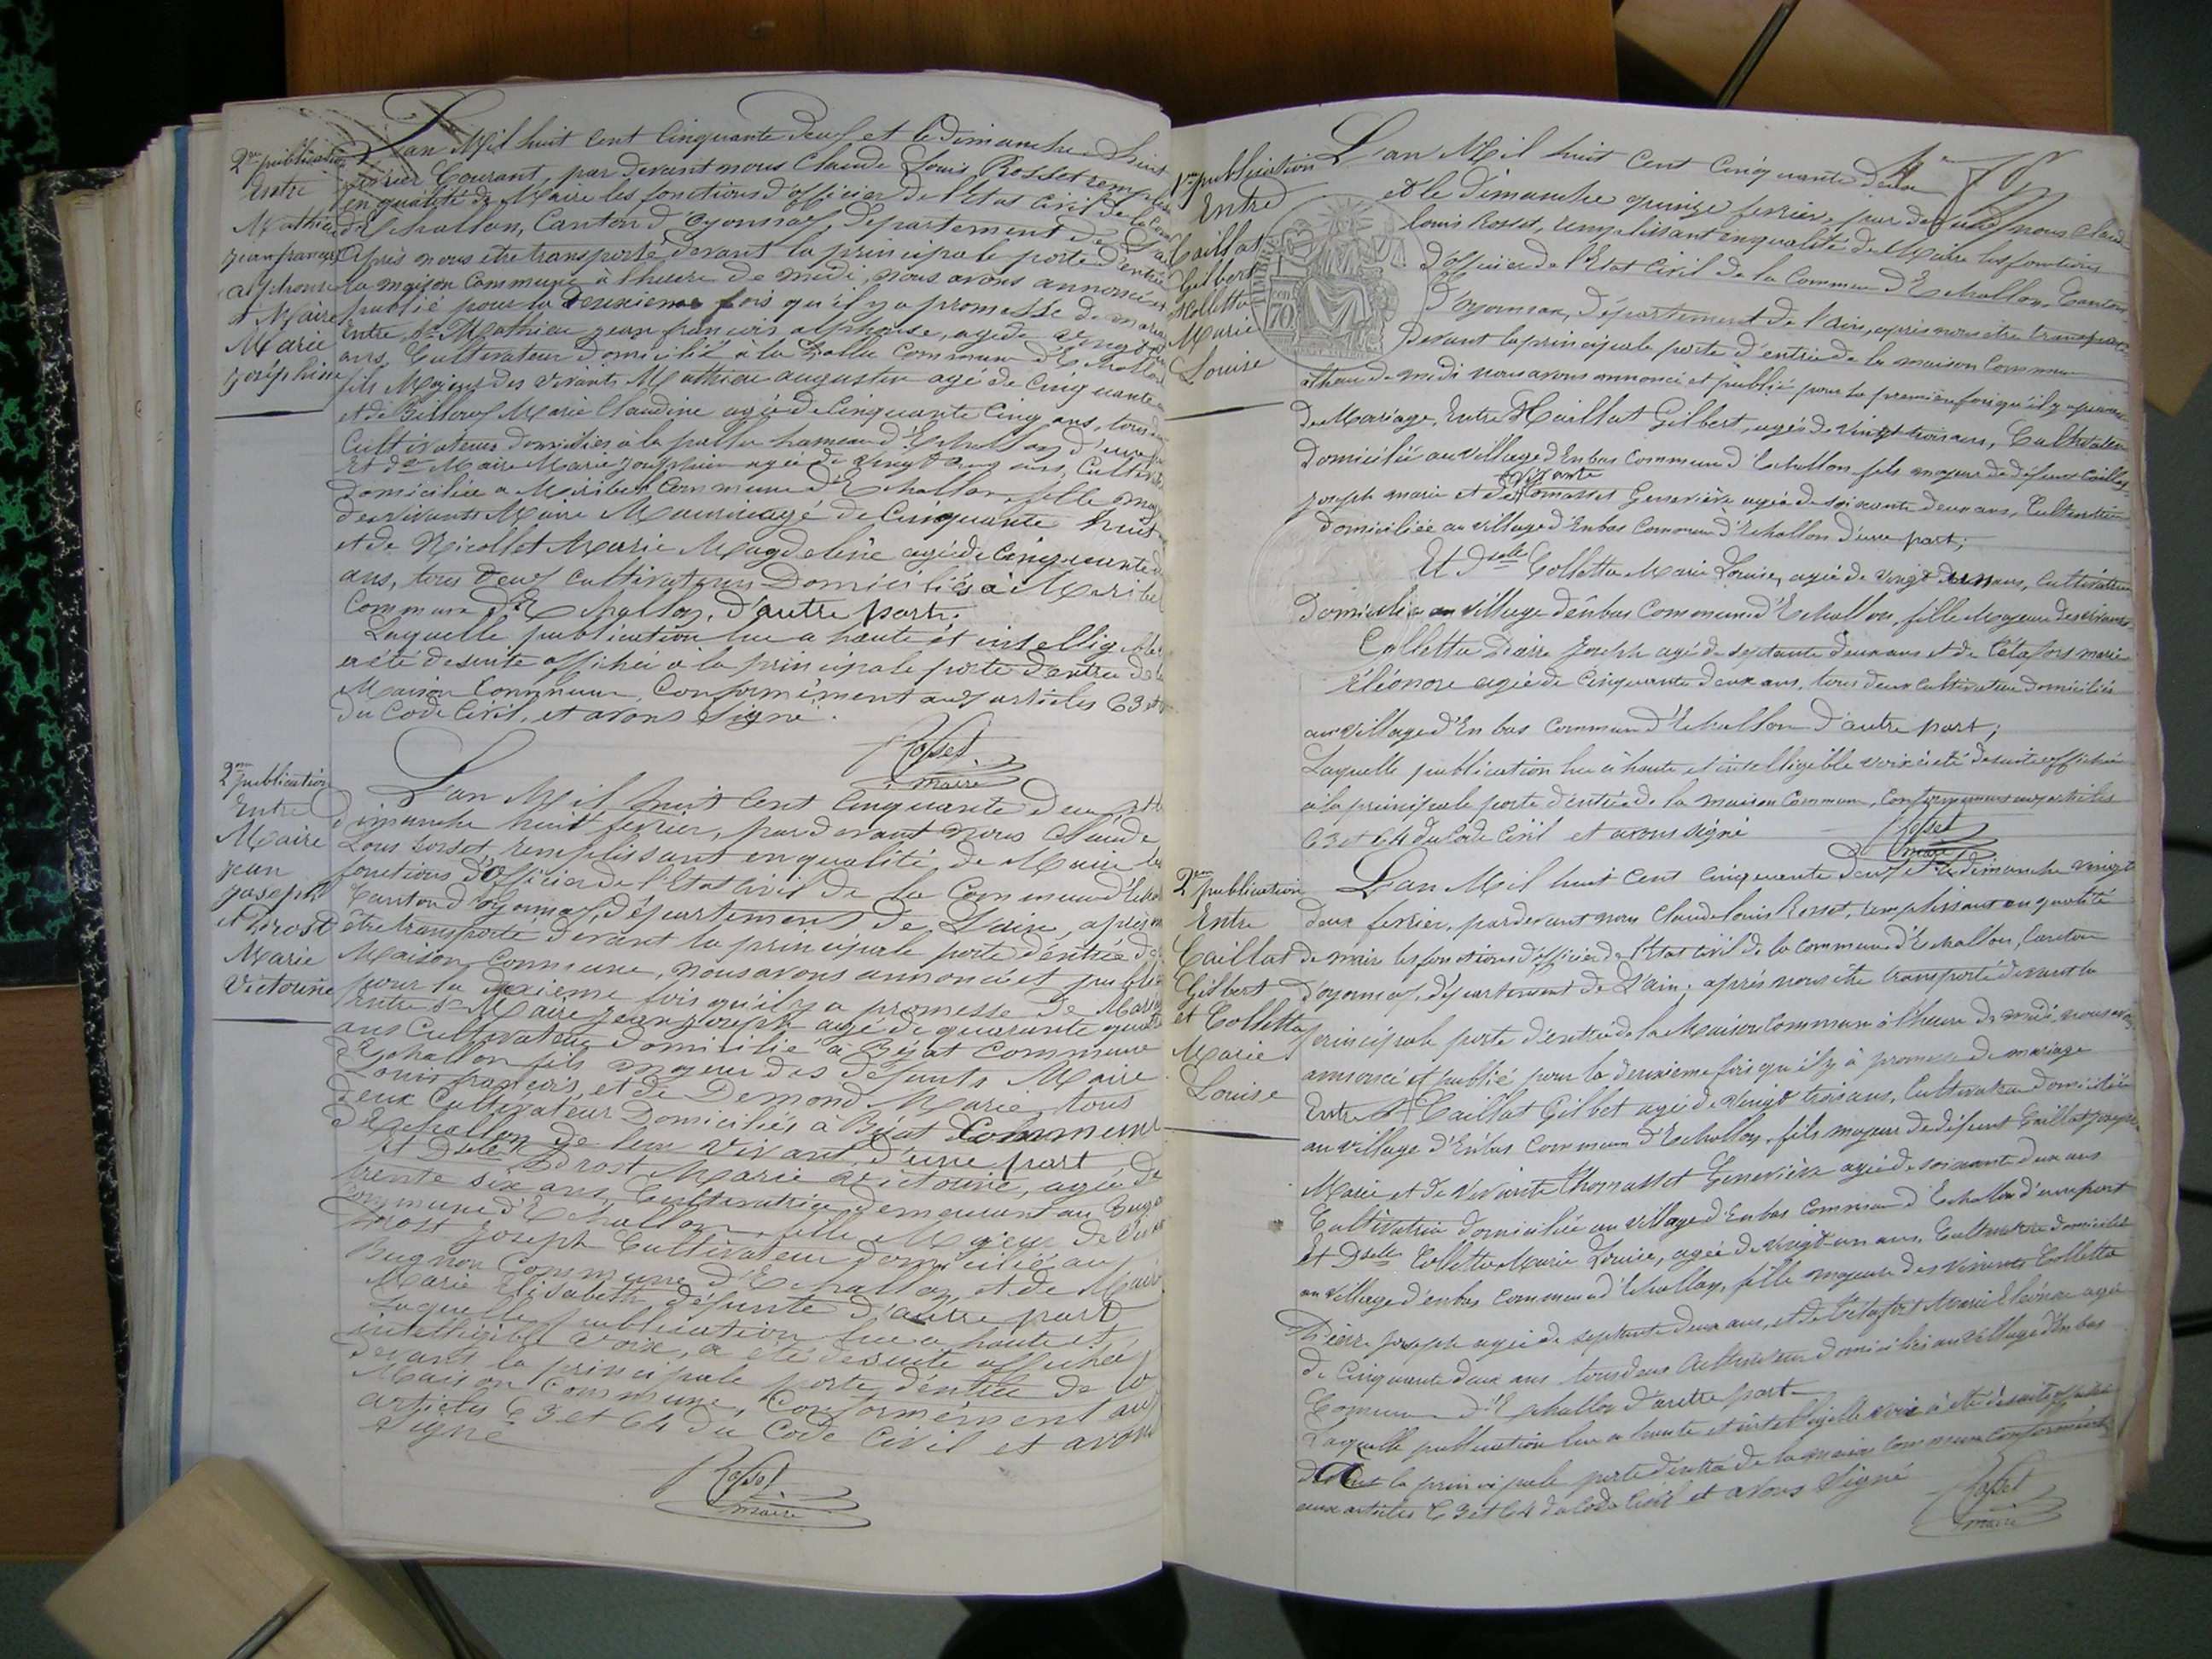 2me publication
Entre
Mathieu
jean francois
alphonse
et Maire
Marie
joséphine
L'an Mil huit Cent Cinquante Deux et le Dimanche huit
février Courant, par devant nous Claude Louis Rosset remplis
en qualité de Maire les fonctions d'officier de l'Etat Civil de la Com
d'Echallon, Canton d'oyonnax, Département de
après nous être transporté devant la principale porte d'entrée
la maison Commune à l'heure de midi, nous avons annoncé et
publié pour la deuxieme fois qu'il y a promesse de maria
Entre Sr Mathieu jean francois alphonse, agé de vingt
ans, Cultivateur domicilié à la Commune d'Echallon
fils Majeur des vivants Mathieu augustin agé de Cinquante
et de Marie Claudine agée de Cinquante Cinq ans, tous
Cultivateurs domiciliés à la hameau d'Echallon d'une
Et dlle Maire Marie joséphine agée de vingt ans, Cultiv
Domiciliée a Miribel Commune d'Echallon, fille maj
des vivants Maire Maurice agé de Cinquante huit
et de Nicollet Marie Magdeleine agée de Cinquante
ans, tous deux Cultivateurs Domiciliés à Miribel
Commune d'Echallon, D'autre part.
Laquelle publication lue a haute et intelligible
a été desuite affichée à la principale porte d'entrée de la
Maison Commune, Conformément aux articles 63 et
Du Code Civil, et avons Signé.
Rosset
maire
2me publication
Entre
Maire
jean
joseph
et Drost
Marie
Victorine
L'an Mil huit Cent Cinquante deux, et le
Dimanche huit fevrier, par devant nous Claude
Louis rosset, remplissant en qualité de Maire les
fonctions d'officier de l'Etat Civil de la Commune d'Echal
Canton d'oyonnax, département de L'ain, après n
être transporté devant la principale porte d'entrée de
Maison Commune, nous avons annoncé et publié
pour la dexieme fois qu'il y a promesse de Maria
entre Sr Maire jean joseph agé de quarante quatre
ans Cultivateur domicilié à Béjat Commune
d'Echallon fils majeur des défunts Maire
Louis françois, et de Demond Marie, tous
deux Cultivateur Domiciliés à Béjat Commune
d'Echallon de leur vivant, d'une part
Et Dlle Drost Marie Victorine, agée de
trente six ans, Cultivatrice demeurant au
Commune d'Echallon, fille Majeur de vivant
Drost Joseph Cultivateur domicilié au
Bugnon Commune d'Echallon, et de Maire
Marie Elisabeth défunte D'autre part
Laquelle publication lue a haute et
intelligible voix, a été desuite affichée
devant la principale porte d'entrée de la
Maison Commune, Conformément aux
articles 63 et 64 du Code Civil et avons
Signé
Rosset
maire
1re publication
Entre
Caillat
Gilbert
et Colletta
Marie
Louise
L'an Mil huit Cent Cinquante deux
et le dimanche quinze fevrier, par devant nous Claude
Louis Rosset, remplissant en qualité de Maire les fonctions
d'officier de l'Etat Civil de la Commune d'Echallon, Canton
d'oyonnax, département de l'ain, après nous être transporté
devant la principale porte d'entrée de la maison Commune
a l'heure de midi nous avons annoncé et publié pour la première fois qu'il y a promesse
de Mariage, Entre Caillat Gilbert, agés de vingt trois ans, Cultivateur
domicilié au village d'En bas Commune d'Echallon fils majeur de défunt Caillat
joseph marie et de vivante Thomasset Geneviève agée de soixante deux ans, Cultivatrice
domiciliée au village d'Enbas Commune d'Echallon d'une part;
Et Dlle Colletta Marie Louise, agée de vingt ans, Cultivatrice
domiciliée au village d'enbas Commune d'Echallon, fille Majeure des vivants
Colletta Pierre Joseph agé de septante deux ans et de marie
Eléonore agée de Cinquante deux ans, tous deux Cultivateur domiciliés
au village d'En bas Commune d'Echallon d'autre part;
Laquelle publication lue à haute et intelligible voix à été desuite affichée
à la principale porte d'entrée de la maison Commune, Conformément aux articles
63 et 64 du Code Civil et avons signé
Rosset
maire
2me publication
Entre
Caillat
Gilbert
et Colletta
Marie
Louise
L'an Mil huit Cent Cinquante deux et le dimanche vingt
deux fevrier, pardevant nous Claude louis Rosset, remplissant en qualité
de maire les fonctions d'officier de l'Etat Civil de la Commune d'Echallon, Canton
d'oyonnax, département de L'ain, après nous être transporté devant la
principale porte d'entrée de la Maison Commune à l'heure de midi, nous avons
annoncé et publié pour la deuxieme fois qu'il y à promesse de mariage
Entre Sr Caillat Gilbet agé de Vingt trois ans, Cultivateur domicilié
au village d'Enbas Commune d'Echallon, fils majeur de défunt Caillat joseph
Marie et de Vivante Thomasset Geneviève agée de soixante deux ans
Cultivatrice domiciliée au village d'Enbas Commune d'Echallon d'une part
Et Dselle Colletta Marie Louise, agée de vingt-un ans, Cultivatrice domiciliée
au village d'enbas Commune d'Echallon, fille majeure des vivants Colletta
Pierre Joseph agé de septante deux ans, et de Marie Eléonore agée
de Cinquante deux ans tous deux Cultivateur domiciliés au village d'En bas
Commune d'Echallon d'autre part
Laquelle publication lue a haute et intelligible voix à été desuite affichée
devant la principale porte d'entrée de la maison Commune Conformément
aux articles 63 et 64 du Code Civil et avons Signé
Rosset
maire